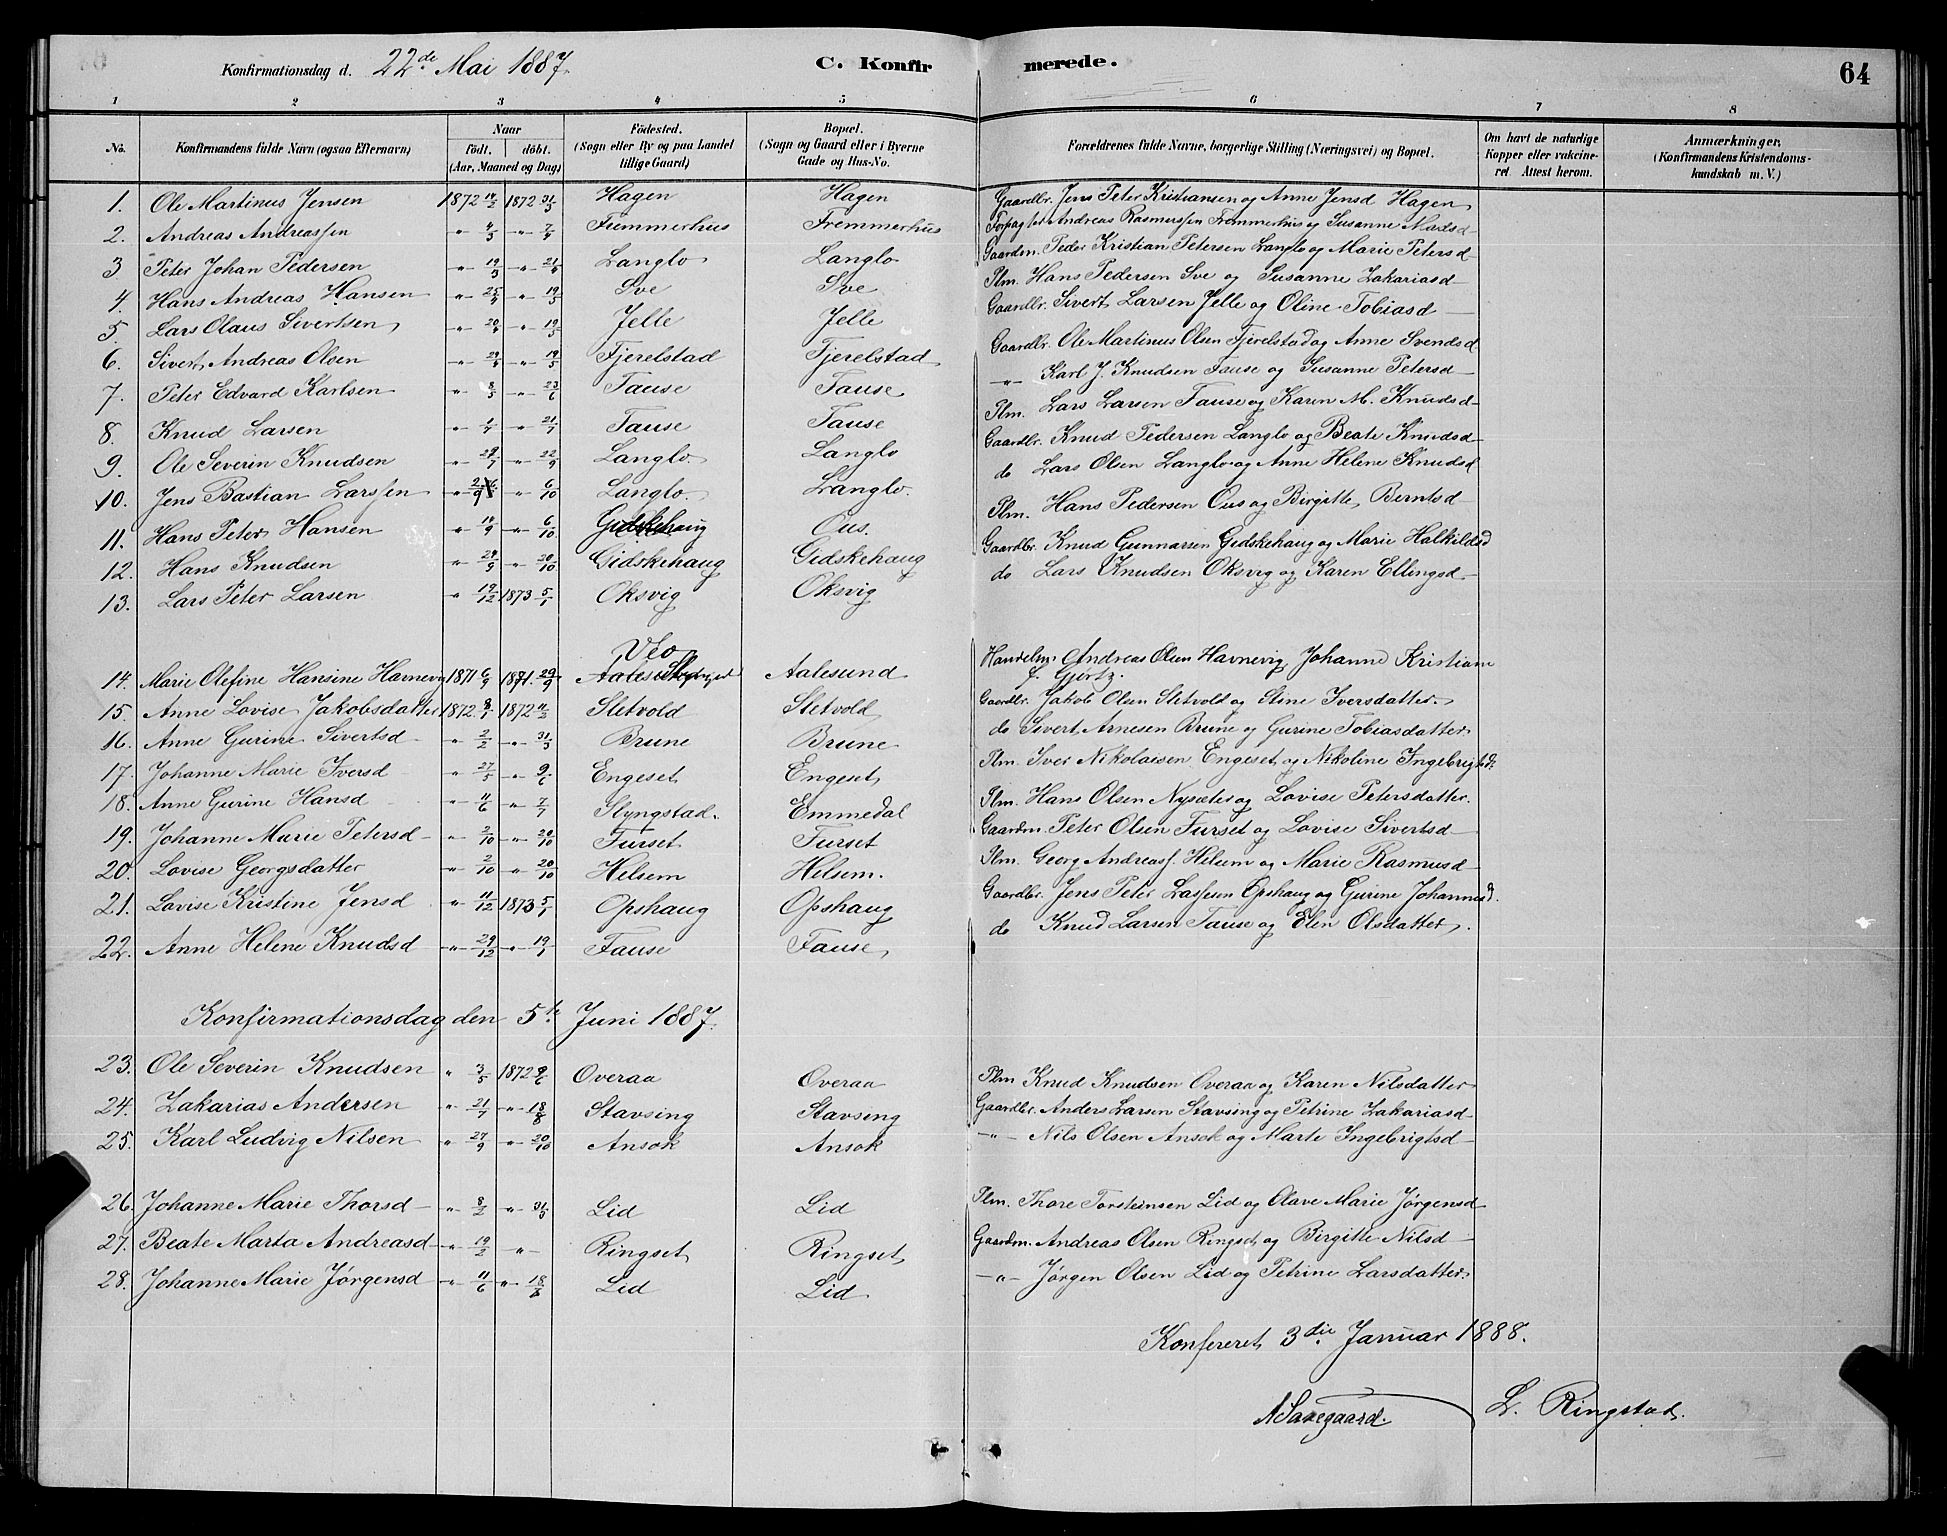 Konfirmationsdag d. 22de Mai 1887. C. Konfirmerede. 64
1 2 3 4 5 6 7 8
No. Konfirmandens fulde Navn (ogsaa Efternavn) Naar födt. döbt. (Aar, Maaned og Dag) Födested. (Sogn eller By og paa Landet tillige Gaard) Bopæl. (Sogn og Gaard eller i Byerne Gade og Hus-No. Forældrenes fulde Navne, borgerlige Stilling (Næringsvei) og Bopæl. Om havt de naturlige Kopper eller vaccineret. Attest herom. Anmærkninger. (Konfirmandens Kristendomskundskab m. V.)
1. Ole Martinus Jensen 1872 14/2 1872 31/3 Hagen Hagen Gaardbr. Jens Peter Kristiansen og Anne Jensd Hagen
2. Andreas Andreassen " 4/3 " 7/4 Fremmerhus Fremmerhus Forpagter Andreas Rasmussen Fremmerhus og Susanne Madsd
3 Peter Johan Pedersen " 19/3 " 21/5 Langlo Langlo Gaardm. Peder Kristian Petersen Langlo og Marie Petersd
4. Hans Andreas Hansen " 25/4 " 19/5 Sve Sve Plm. Hans Pedersen Sve og Susanne Zakariasd
5. Lars Olaus Sivertsen " 20/4 " 19/5 Jelle Jelle Gaardbr. Sivert Larsen Jelle og Oline Tobiasd
6. Sivert Andreas Olsen " 29/4 " 19/5 Fjerelstad Fjerelstad Gaardbr. Ole Martinus Olsen Fjerelstad og Anne Svendsd
7. Peter Edvard Karlsen " 8/5 " 23/6 Fause Fause " Karl J. Knudsen Fause og Susanne Petersd
8. Knud Larsen " 1/7 " 21/7 Fause Fause Plm. Lars Larsen Fause og Karen M. Knudsd
9. Ole Severin Knudsen " 29/7 " 22/9 Langlo Langlo Gaardbr. Knud Pedersen Langlo og Beate Knudsd
10. Jens Bastian Larssen " " 6/10 Langlo. Langlo. do Lars Olsen Langlo og Anne Helene Knudsd
11. Hans Peter Hansen " 14/9 " 6/10 Gidskehaug Ous. Plm. Hans Pedersen Ous og Birgitte Berntsd
12. Hans Knudsen " 29/9 " 20/10 Gidskehaug Gidskehaug Gaardbr. Knud Gunnarsen Gidskehaug og Marie Halkildsd
13. Lars Peter Larsen " 19/12 1873 5/1 Oksvig Oksvig do Lars Knudsen Oksvig og Karen Ellingsd.
14. Marie Olefine Hansine Havnevig 1871 6/9 1871. 29/9 Aalesund Handelm. Andreas Olsen Havnevig Johanne Kristiane f. Gjørtz.
15. Anne Lovise Jakobsdatter 1872. 8/1 1872 11/2 Sletvold Sletvold Gaardbr. Jakob Olsen Sletvold og Stine Iversdatter.
16. Anne Gurine Sivertsd " 2/2 " 31/3 Brune Brune do Sivert Arnesen Brune og Gurine Tobiasdatter
17. Johanne Marie Iversd " 27/5 " 9/6 Engeset Engeset Plm. Iver Nikolaisen Engeset og Nikoline Ingebrigtsd.
18. Anne Gurine Hansd " 11/6 " 7/7 Slyngstad. Emmedal Plm. Hans Olsen Nysæter og Lovise Petersdatter.
19. Johanne Marie Petersd " 2/10 " 20/10 Furset Furset Gaardm. Peter Olsen Furset og Lovise Sivertsd
20. Lovise Georgsdatter " 2/10 " 20/10 Helsem Helsem. Plm. Georg Andreass. Helsem og Marie Rasmusd
21. Lovise Kristine Jensd " 11/12 1873 5/1 Opshaug Opshaug Gaardbr. Jens Peter Lassesen Opshaug og Gurine Johannesd.
22. Anne Helene Knudsd " 29/12 " 19/1 Fause Fause do Knud Larsen Fause og Elen Olsdatter.
Konfirmationsdag den 5te Juni 1887.
23. Ole Severin Knudsen " 3/5 1872 9/6 Overaa Overaa Plm Knud Knudsen Overaa og Karen Nilsdatter
24. Zakarias Andersen " 21/7 " 18/8 Stavseng Stavseng Gaardbr. Anders Larsen Stavseng og Petrine Zakariasd
25. Karl Ludvig Nilsen " 27/9 " 20/10 Ansok Ansok " Nils Olsen Ansok og Marte Ingebrigtsd
26. Johanne Marie Thorsd " 8/2 " 31/3 Lid Lid Plm. Thore Torsteinsen Lid og Olave Marie Jørgensd
27. Beate Marta Andreasd " 19/2 " Ringset Ringset Gaardm. Andreas Olsen Ringset og Birgitte Nilsd
28. Johanne Marie Jørgensd " 11/6 " 18/8 Lid Lid " Jørgen Olsen Lid og Petrine Larsdatter
Konfereret 3die Januar 1888.
L. Ringstad.